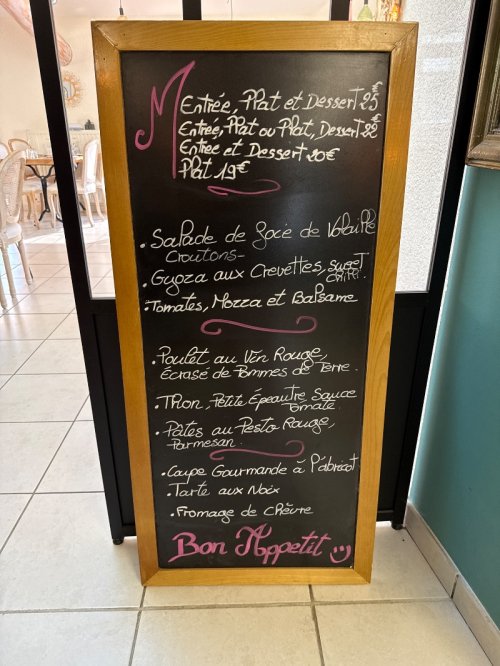 M
Entrée, Plat et Dessert 25€
Entrée, Plat ou Plat, Dessert 22€
Entrée et Dessert 20€
Plat 19€
. Salade de Gocé de Volaille
Croutons-
. Gyoza aux Crevettes, sweet
chili.
. Tomates, Mozza et Balsame
. Poulet au Vin Rouge,
Écrasé de Pommes de Terre.
. Thon, Petite Épeautre, Sauce
Tomate.
. Pâtes au Pesto Rouge,
Parmesan.
. Coupe Gourmande à l'abricot
. Tarte aux Noix
. Fromage de Chèvre
Bon Appetit